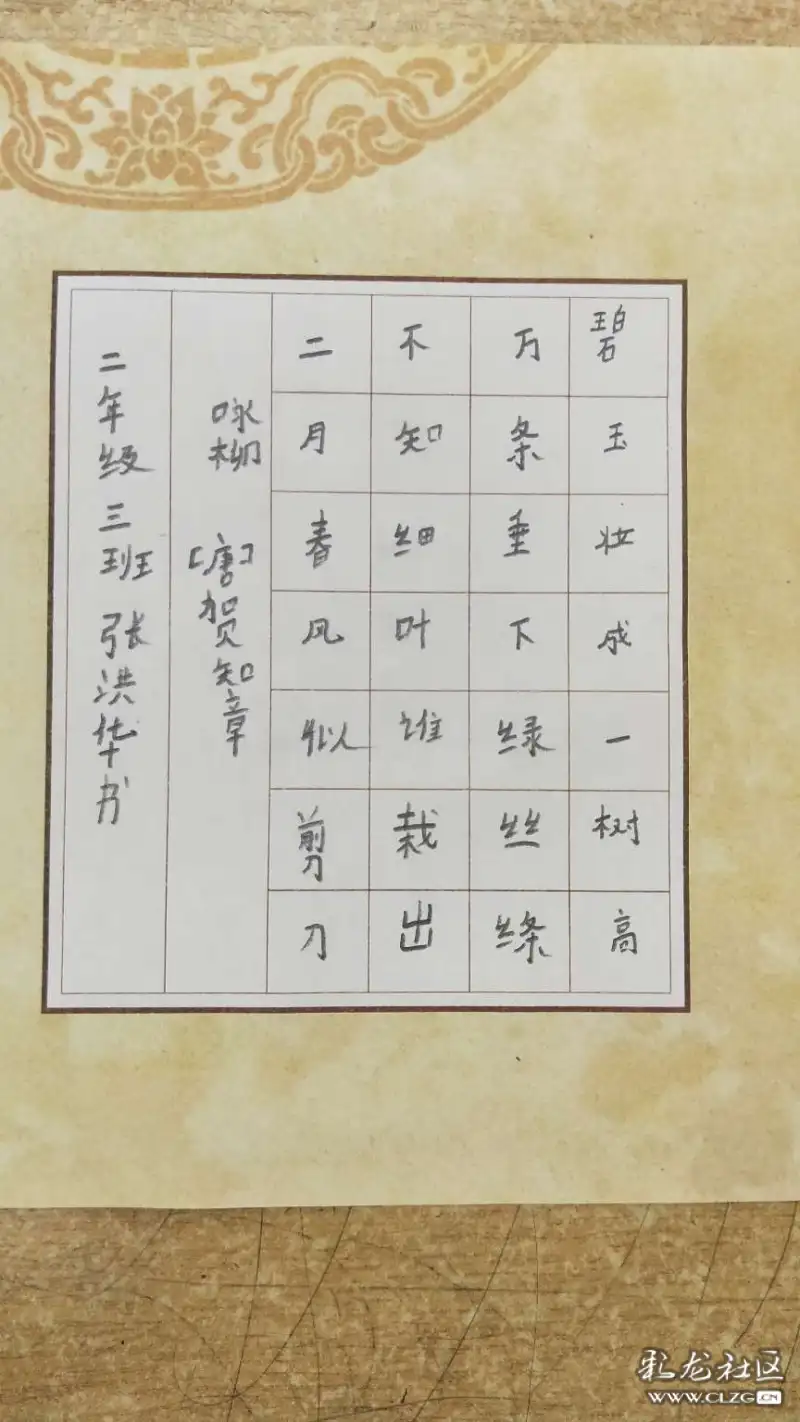 碧玉妆成一树高
万条垂下绿丝绦
不知细叶谁栽出
二月春风似剪刀
咏柳 [唐]贺知章
二年级三班张洪华书
彩龙社区
WWW.CLZG.CN